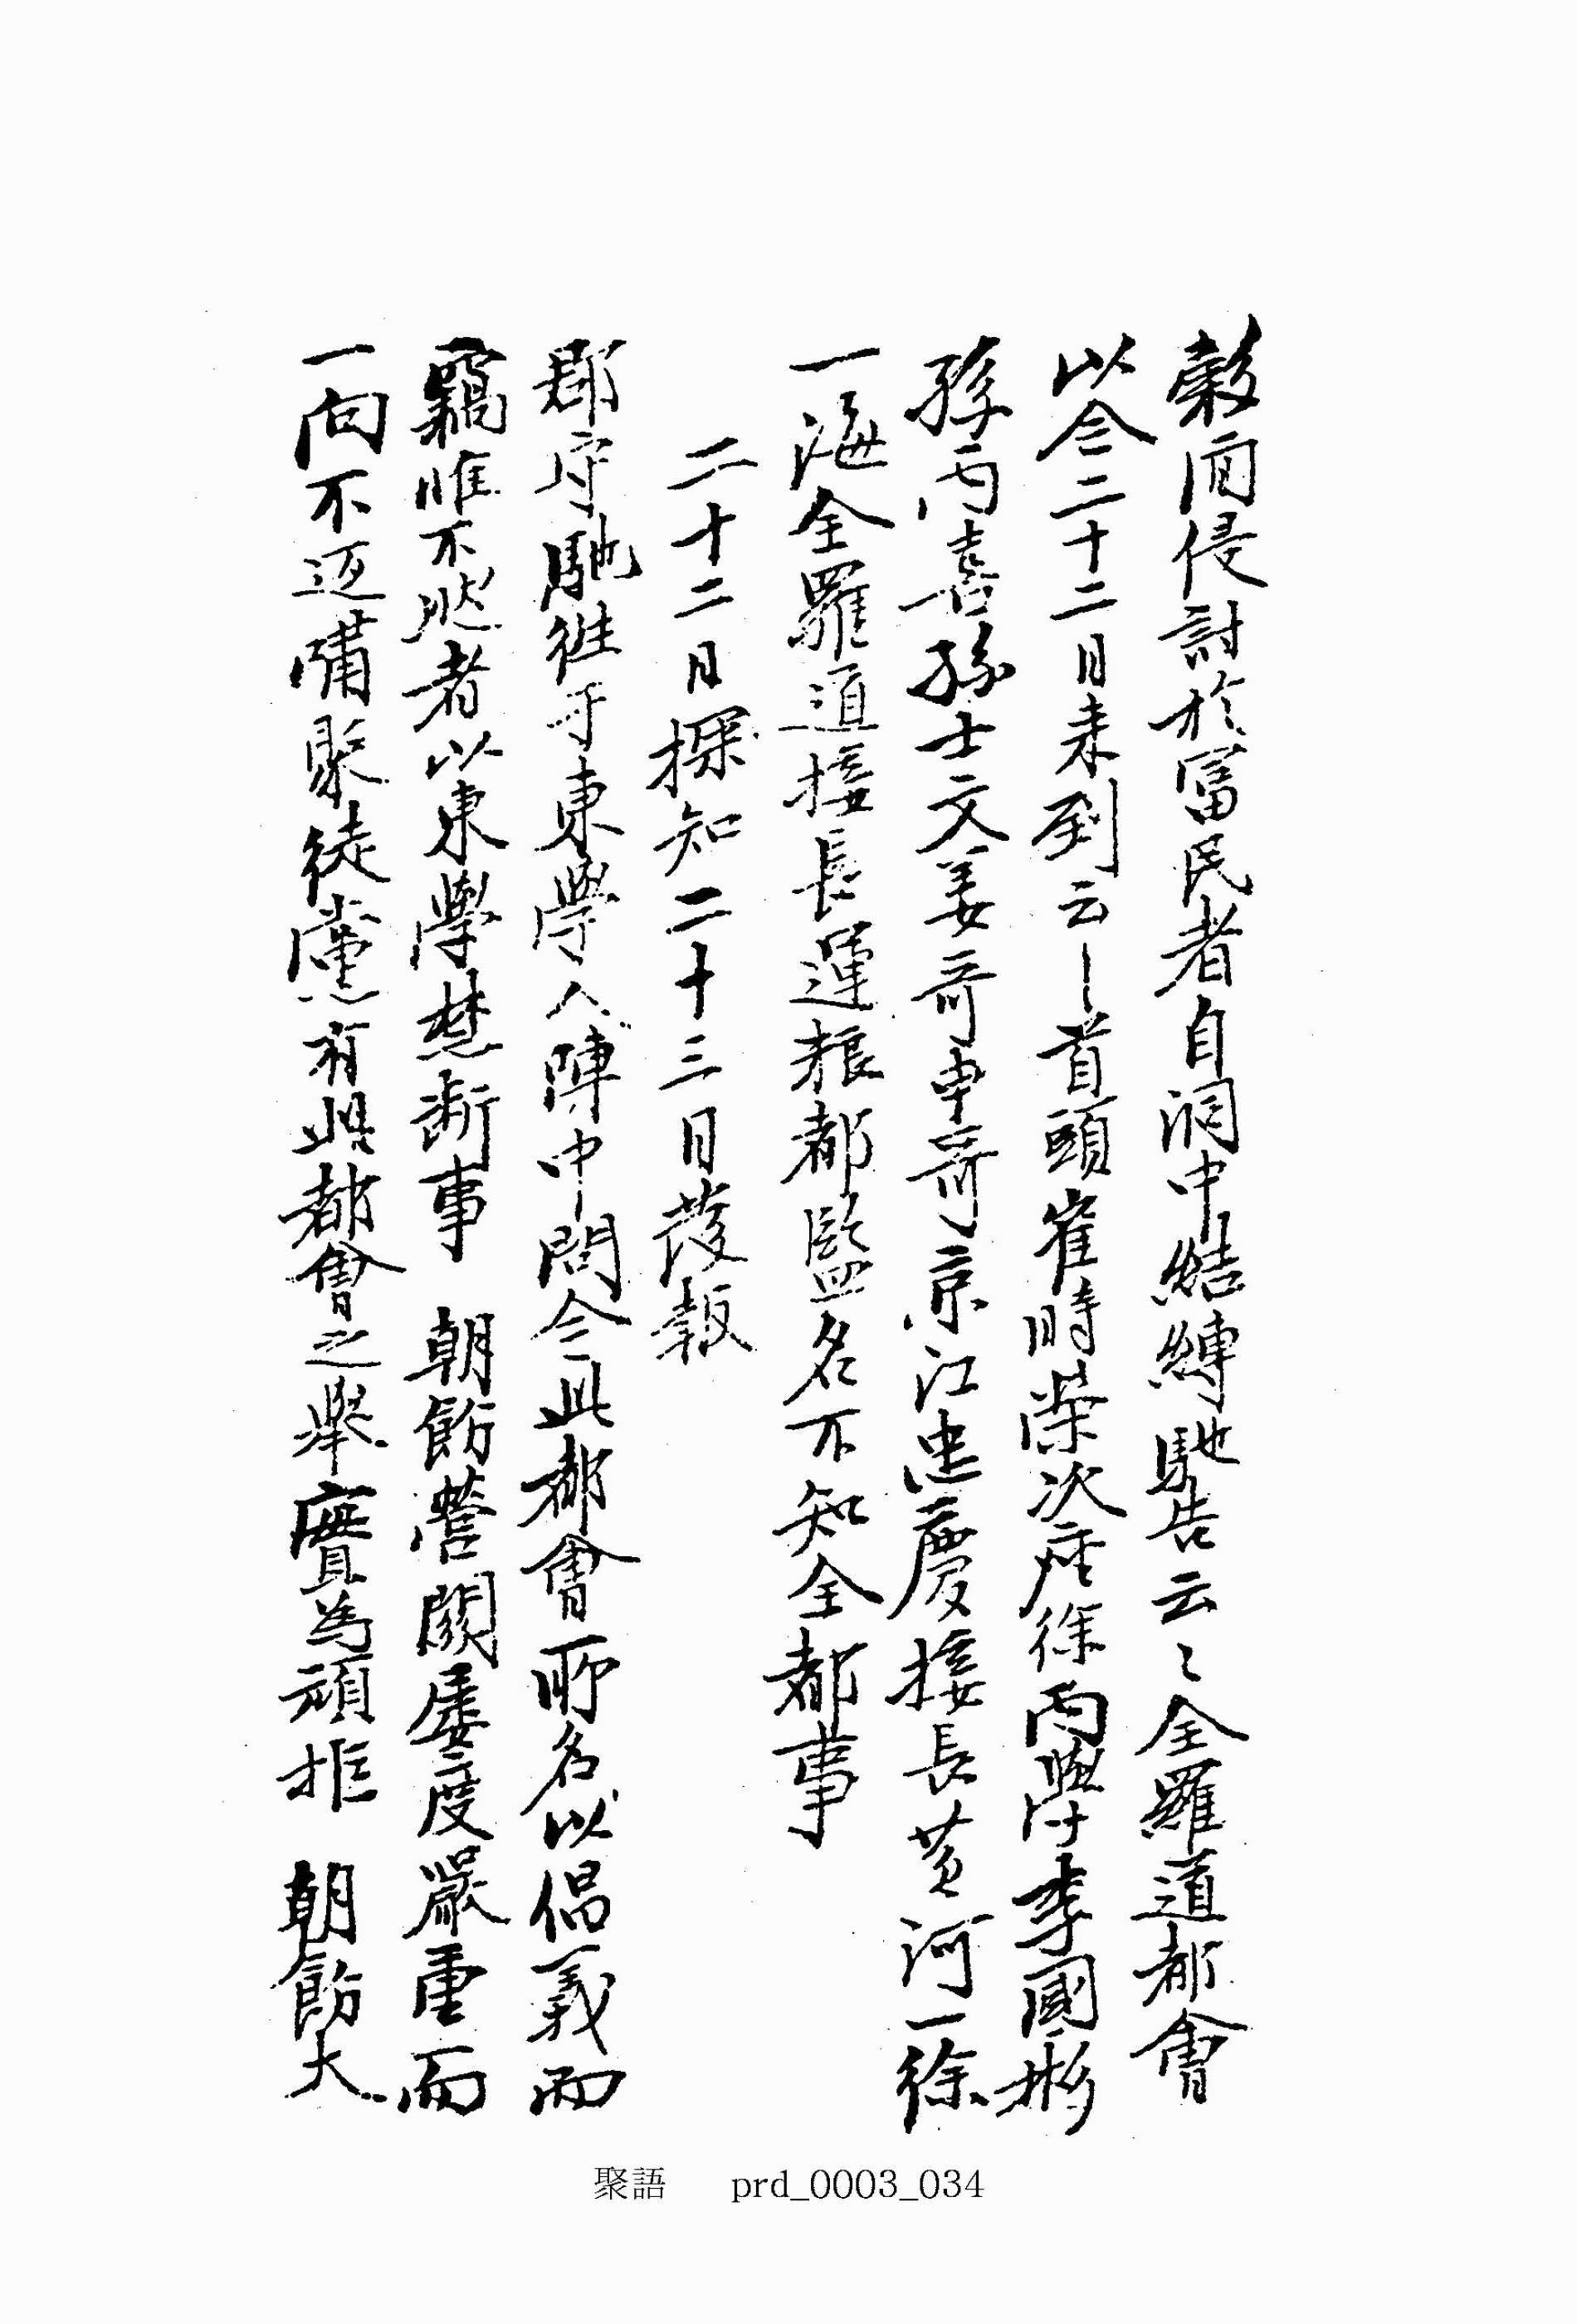 穀面侵討於富民者自洞中結縛馳告云〻全羅道都會
以今二十二日来到云〻首頭崔時榮次座徐丙學李國彬
孫丙喜孫士文姜哥申哥京江忠慶接長黃河一徐
一海全羅道接長運粮都監名不知全都事
二十二日探知二十三日發報
郡守馳徃于東學人陣中問今此都會所名以倡義而
竊惟不然者以東學禁斷事 朝飭營關屢度嚴重而
一向不返嘯聚徒黨有此都會之擧實為頑拒 朝飭大
聚語 prd_0003_034